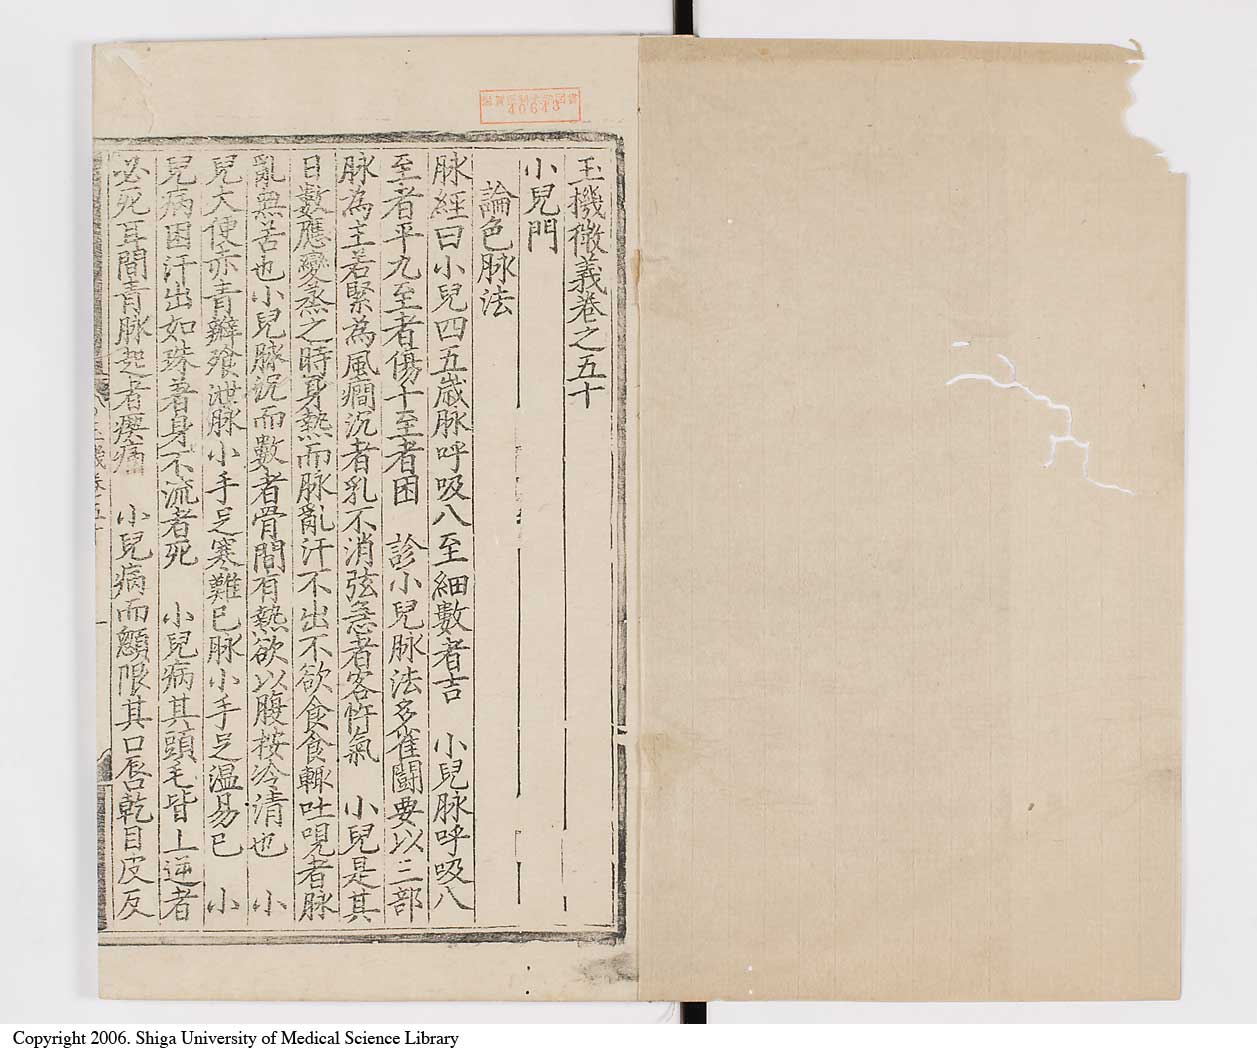 玉機微義卷之五十
小兒門
論色脉法
脉經曰小兒四五歲脉呼吸八至細數者吉　小兒脉呼吸八
至者平九至者傷十至者困　診小兒脉法多雀鬪要以三部
脉為主若緊為風癇沉者乳不消弦急者客忤氣　小兒是其
日數應變蒸之時身熱而脉亂汗不出不欲食食輙吐哯者脉
亂無苦也小兒脉沉而數者骨間有熱欲以腹按冷清也　小
兒大便赤青瓣飱泄脉小手足寒難已脉小手足温易已　小
兒病困汗出如珠著身不流者死　小兒病其頭毛皆上逆者
必死耳間青脉起者瘈痛　小兒病而顖陷其口唇乾目皮反
40643
Copyright 2006. Shiga University of Medical Science Library